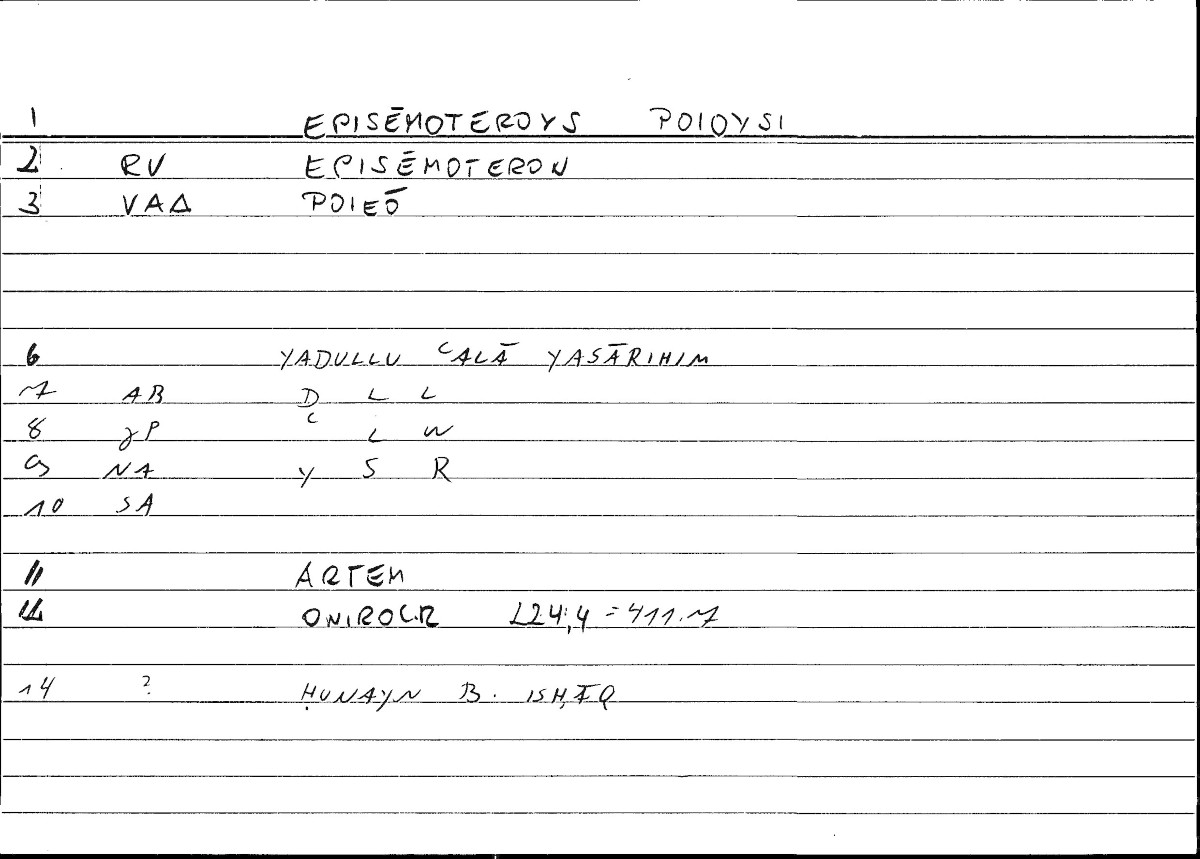 1 EPISĒMOTEROYS POIOYSI
2 RV EPISĒMOTERON
3 VAΔ POIEŌ
6 YADULLU ʿALĀ YASĀRIHIM
7 AB D L L
8 γP ʿ L W
9 NA Y S R
10 SA
11 ARTEM
12 ONIROCR 224,4 = 411.7
14 ? ḤUNAYN B. ISḤĀQ